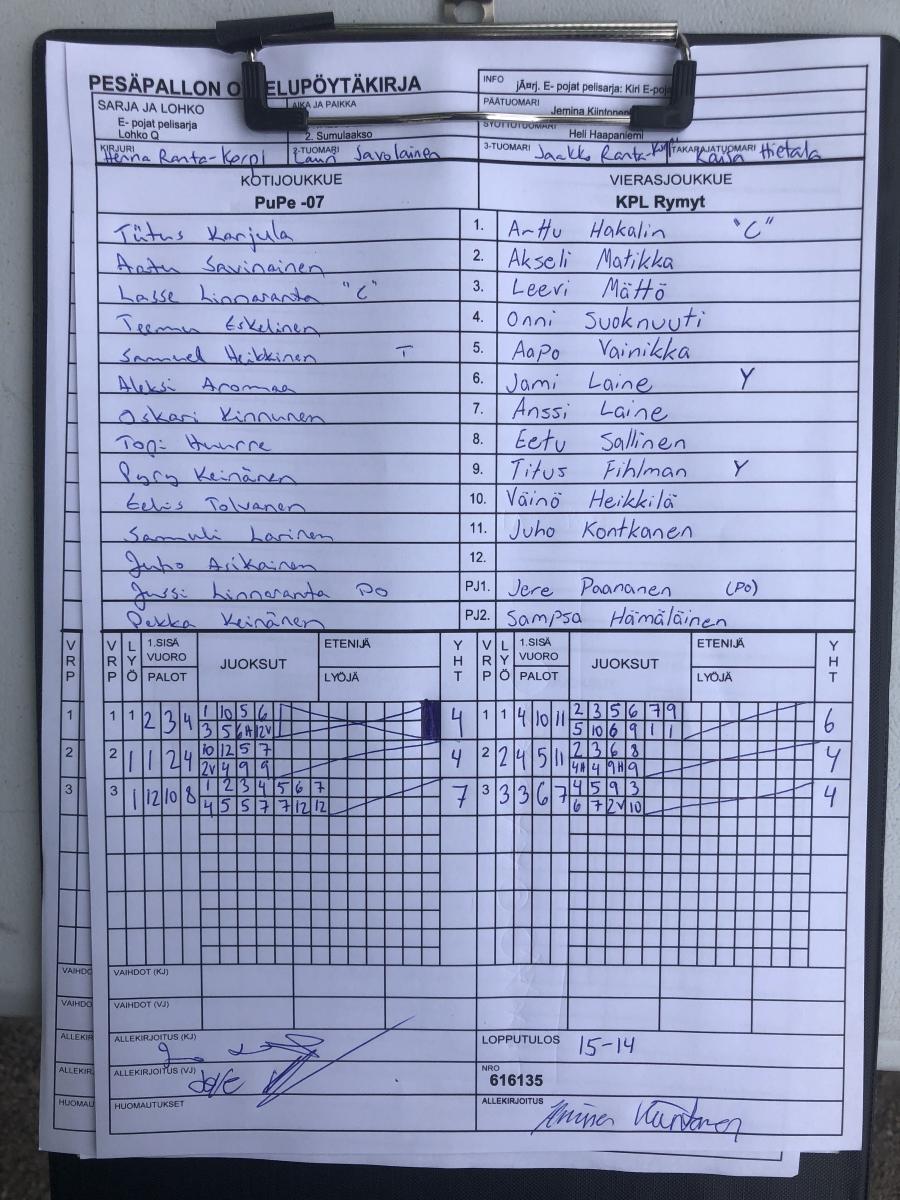 PESÄPALLON O ELUPÖYTÄKIRJA
INFO
jÄ¤rj. E- pojat pelisarja: Kiri E-poja
SARJA JA LOHKO
E- pojat pelisarja
Lohko Q
AIKA JA PAIKKA
2. Sumulaakso
PÄÄTUOMARI
Jemina Kiintonen
SYÖTTÖTUOMARI
Heli Haapaniemi
KIRJURI
Henna Ranta-Korpi
2-TUOMARI
Lauri Savolainen
3-TUOMARI Jaakko Ranta-
TAKARAJATUOMARI Kaisa Hietala
KOTIJOUKKUE VIERASJOUKKUE
PuPe -07 KPL Rymyt
Tiitus Karjula 1. Arttu Hakalin "C"
Anttu Savinainen 2. Akseli Matikka
Lasse Linnaranta "C" 3. Leevi Mättö
Teemu Eskelinen 4. Onni Suoknuuti
Samuel Heikkinen T 5. Aapo Vainikka
Aleksi Aromaa 6. Jami Laine Y
Oskari Kinnunen 7. Anssi Laine
Topi Huurre 8. Eetu Sallinen
Pyry Keinänen 9. Titus Fihlman Y
Eelis Tolvanen 10. Väinö Heikkilä
Samuli Larinen 11. Juho Kontkanen
Juho Asikainen 12.
Jussi Linnaranta PO PJ1. Jere Paananen (PO)
Pekka Keinänen PJ2. Sampsa Hämäläinen
VRP VRP LYÖ 1.SISÄ VUORO PALOT JUOKSUT ETENIJÄ LYÖJÄ YHT VRP LYÖ 1.SISÄ VUORO PALOT JUOKSUT ETENIJÄ LYÖJÄ YHT
1 1 1 2 3 4 1 10 5 6 4 1 1 4 10 11 2 3 5 6 7 9 6
3 5 6H 12V 5 10 6 9 1 1
2 2 1 1 2 4 10 12 5 7 4 2 2 4 5 11 2 3 6 8 4
2V 4 9 9 4H 4 9H 9
3 3 1 12 10 8 1 2 3 4 5 6 7 7 3 3 3 6 7 4 5 9 3 4
4 5 5 7 7 12 12 6 7 2V 10
VAIHDO VAIHDOT (KJ)
VAIHDO VAIHDOT (VJ)
ALLEKIR ALLEKIRJOITUS (KJ) LOPPUTULOS 15-14
ALLEKIR ALLEKIRJOITUS (VJ) NRO
616135
HUOMAU HUOMAUTUKSET ALLEKIRJOITUS